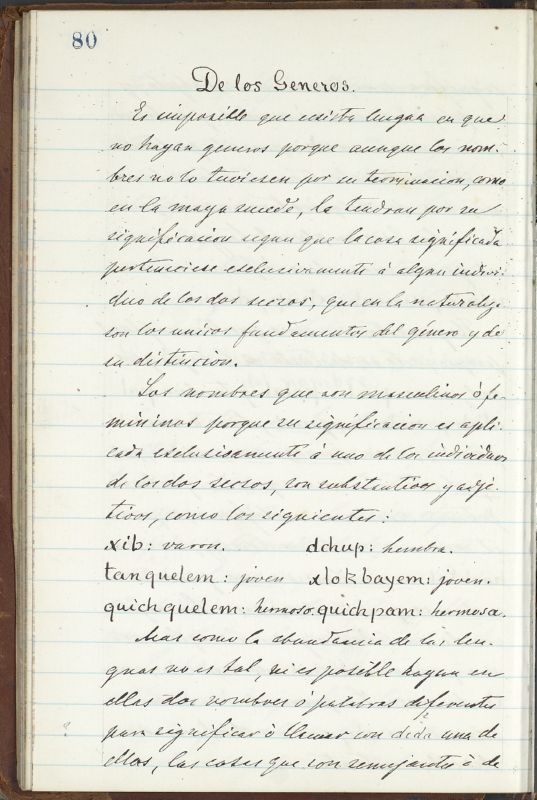 80
De los Generos.
Es imposible que exista lengua en que
no hayan generos porque aunque los nom-
bres no lo tuviesen por su terminacion, como
en la maya sucede, la tendran por su
significacion segun que la cosa significada
perteneciese esclusivamente á algun indivi-
duo de los dos secsos, que en la naturaleza
son los unicos fundamentos del género y de
su distincion.
Los nombres que son masculinos ó fe-
mininos porque su significacion es apli-
cada esclusivamente á uno de los individuos
de los dos secsos, son substantivos y adje-
tivos, como los siguientes:
xib: varon. dchup: hembra.
tanquelem: joven xlokbayem: joven.
quichquelem: hermoso. quichpam: hermosa.
Mas como la abundancia de las len-
guas no es tal, ni es posible hayan en
ellas dos nombres ó palabras diferentes
para significar ó llamar con cada una de
ellas, las cosas que son semejantes ó de